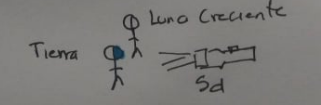 Luna Creciente
Tierra
Sd